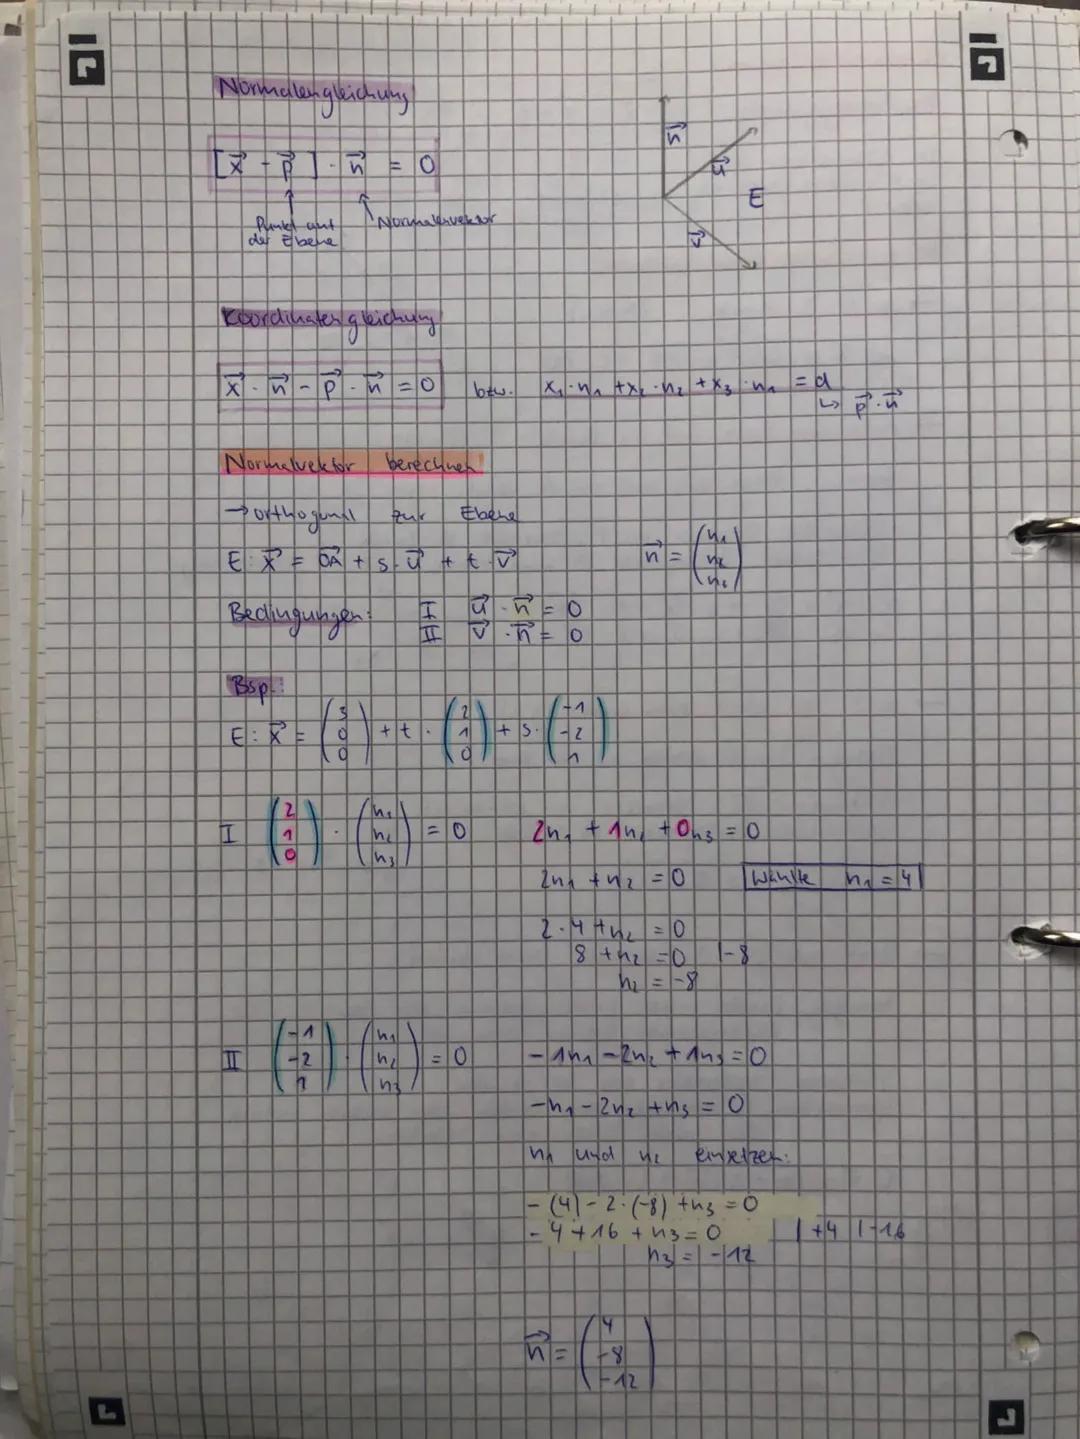 Normalengleichung
[x⃗ - p⃗] · n⃗ = 0
Punkt auf der Ebene
Normalenvektor
n⃗
u⃗
E
v⃗
Koordinatengleichung
x⃗ · n⃗ - p⃗ · n⃗ = 0 bzw. x₁·n₁ + x₂·n₂ + x₃·n₁ = d
↳ p⃗·n⃗
Normalvektor berechnen
→ orthogonal zur Ebene
E: x⃗ = 0A⃗ + s·u⃗ + t·v⃗ n⃗ = (n₁ n₂ n₃)
Bedingungen: I u⃗ · n⃗ = 0
II v⃗ · n⃗ = 0
Bsp.:
E: x⃗ = (3 0 0) + t · (2 1 0) + s · (-1 -2 1)
I (2 1 0) · (n₁ n₂ n₃) = 0 2n₁ + 1n₂ + 0n₃ = 0
2n₁ + n₂ = 0 Wähle n₁ = 4
2·4 + n₂ = 0
8 + n₂ = 0 |-8
n₂ = -8
II (-1 -2 1) · (n₁ n₂ n₃) = 0 -1n₁ - 2n₂ + 1n₃ = 0
-n₁ - 2n₂ + n₃ = 0
n₁ und n₂ einsetzen:
-(4) - 2·(-8) + n₃ = 0
-4 + 16 + n₃ = 0 |+4 |-16
n₃ = -12
n⃗ = (4 -8 -12)